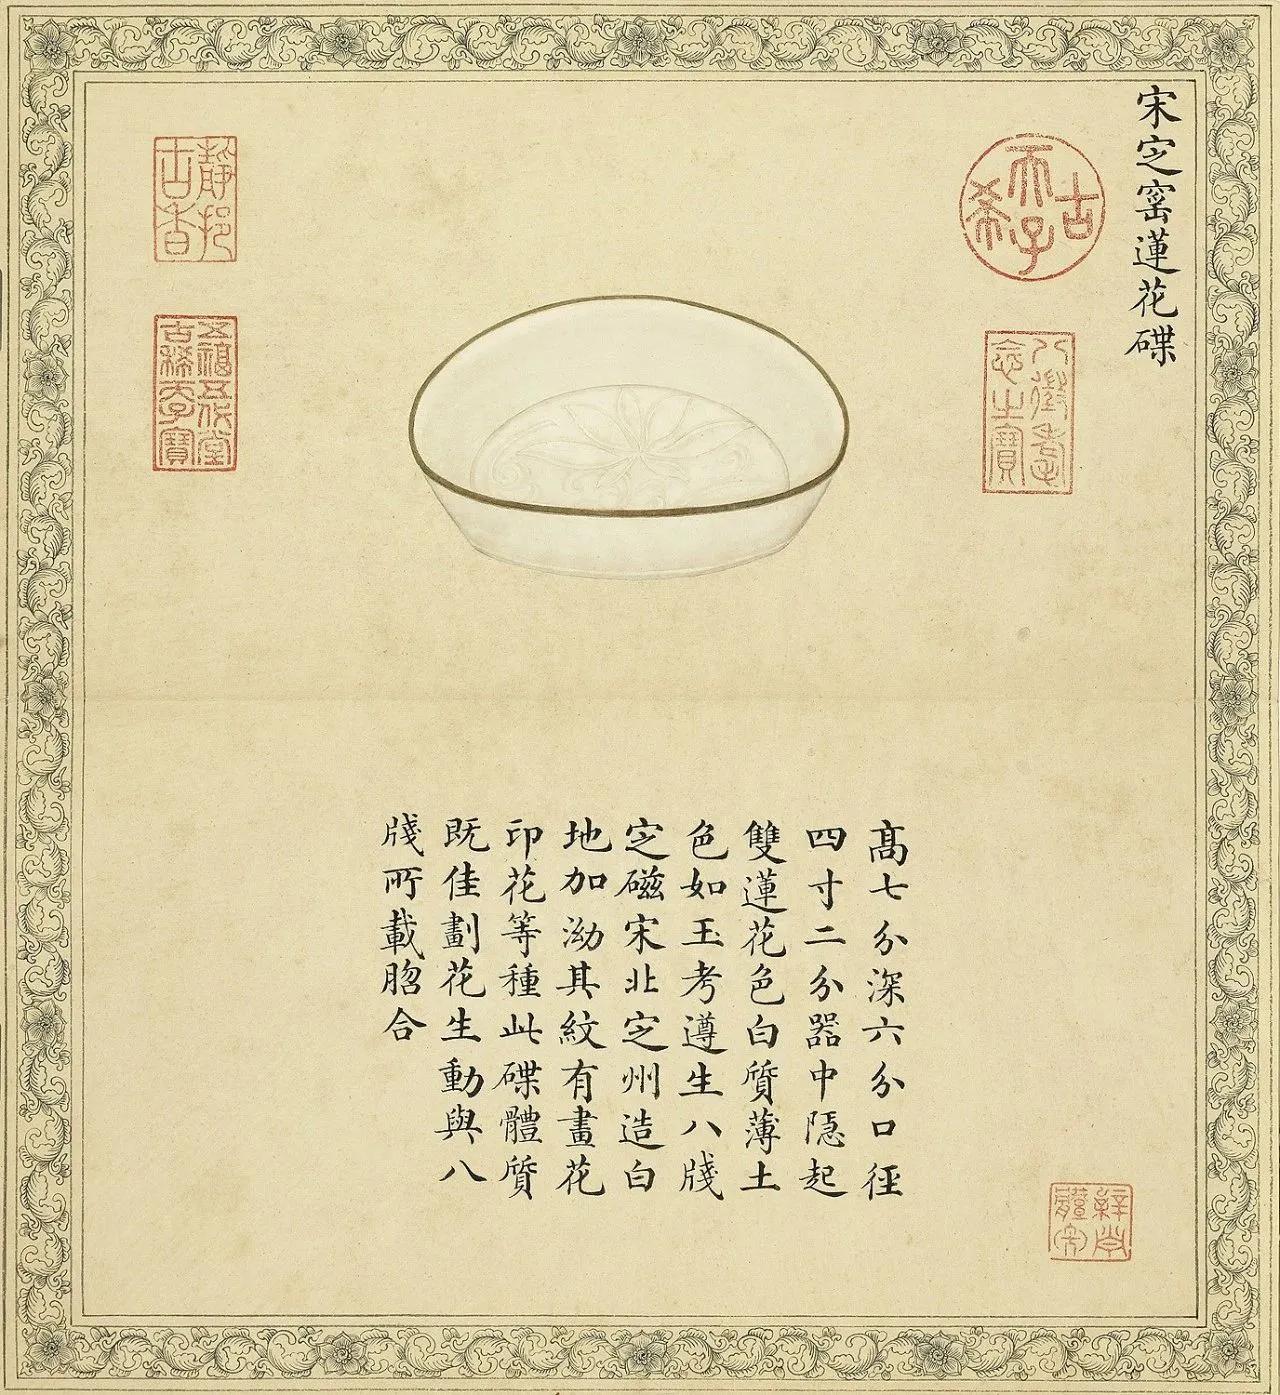 宋㝎窑蓮花碟
古希天子
八徵耄念之寶
髙七分深六分口徑
四寸二分器中隱起
雙蓮花色白質薄土
色如玉考遵生八牋
㝎磁宋北㝎州造白
地加泑其紋有畫花
印花等種此碟體質
既佳劃花生動與八
牋所載脗合
靜挹古香
五福五代堂古稀天子寶
辭尚體要